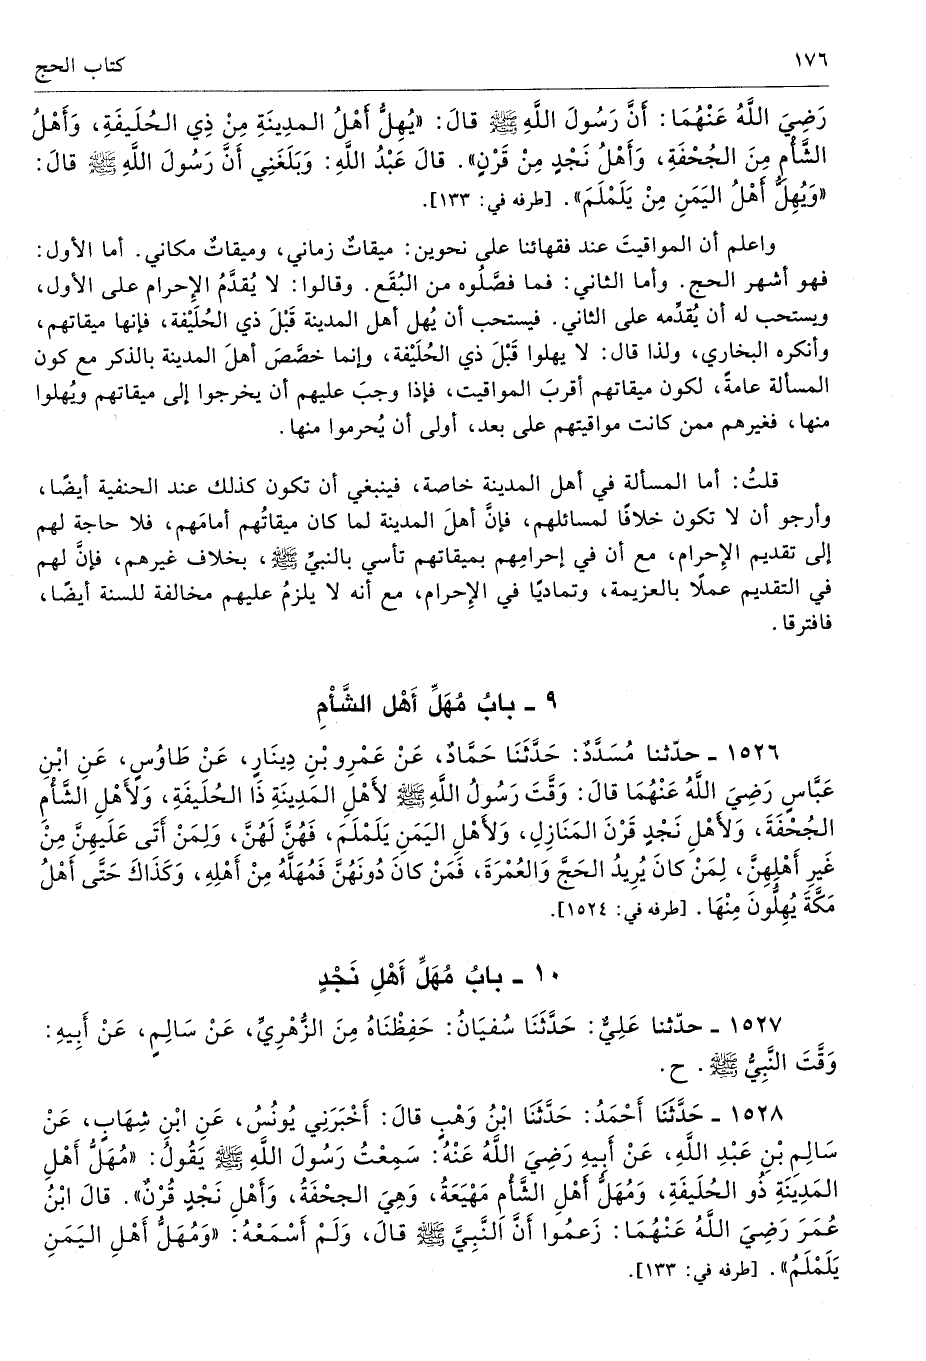 ١٧٦ كتاب الحج
رَضِيَ اللَّهُ عَنْهُمَا: أَنَّ رَسُولَ اللَّهِ ﷺ قالَ: «يُهِلُّ أَهْلُ المَدِينَةِ مِنْ ذِي الحُلَيفَةِ، وَأَهْلُ
الشَّأْمِ مِنَ الجُحْفَةِ، وَأَهْلُ نَجْدٍ مِنْ قَرْنٍ». قالَ عَبْدُ اللَّهِ: وَبَلَغَنِي أَنَّ رَسُولَ اللَّهِ ﷺ قالَ:
«وَيُهِلُّ أَهْلُ اليَمَنِ مِنْ يَلَمْلَمَ». [طرفه في: ١٣٣].
واعلم أن المواقيتَ عند فقهائنا على نحوين: ميقاتٌ زماني، وميقاتٌ مكاني. أما الأول:
فهو أشهر الحج. وأما الثاني: فما فصَّلُوه من البُقَع. وقالوا: لا يُقدَّمُ الإحرام على الأول،
ويستحب له أن يُقدِّمه على الثاني. فيستحب أن يُهل أهل المدينة قَبْلَ ذي الحُلَيْفة، فإنها ميقاتهم،
وأنكره البخاري، ولذا قال: لا يهلوا قَبْلَ ذي الحُلَيْفة، وإنما خصَّصَ أهلَ المدينة بالذكر مع كون
المسألة عامةً، لكون ميقاتهم أقربَ المواقيت، فإذا وجبَ عليهم أن يخرجوا إلى ميقاتهم ويُهلوا
منها، فغيرهم ممن كانت مواقيتهم على بعد، أولى أن يُحرموا منها.
قلتُ: أما المسألة في أهل المدينة خاصة، فينبغي أن تكون كذلك عند الحنفية أيضًا،
وأرجو أن لا تكون خلافًا لمسائلهم، فإنَّ أهلَ المدينة لما كان ميقاتُهم أمامَهم، فلا حاجة لهم
إلى تقديم الإحرام، مع أن في إحرامِهم بميقاتهم تأسي بالنبيِّ ﷺ، بخلاف غيرهم، فإنَّ لهم
في التقديم عملًا بالعزيمة، وتماديًا في الإحرام، مع أنه لا يلزمُ عليهم مخالفة للسنة أيضًا،
فافترقا.
٩ ـ بابُ مُهَلِّ أَهْلِ الشَّأْمِ
١٥٢٦ ـ حدّثنا مُسَدَّدٌ: حَدَّثَنَا حَمَّادٌ، عَنْ عَمْرِو بْنِ دِينَارٍ، عَنْ طَاوُسٍ، عَنِ ابْنِ
عَبَّاسٍ رَضِيَ اللَّهُ عَنْهُمَا قالَ: وَقَّتَ رَسُولُ اللَّهِ ﷺ لأَهْلِ المَدِينَةِ ذَا الحُلَيفَةِ، وَلأَهْلِ الشَّأْمِ
الجُحْفَةَ، وَلأَهْلِ نَجْدٍ قَرْنَ المَنَازِلِ، وَلأَهْلِ اليَمَنِ يَلَمْلَمَ، فَهُنَّ لَهُنَّ، وَلِمَنْ أَتَى عَلَيهِنَّ مِنْ
غَيرِ أَهْلِهِنَّ، لِمَنْ كانَ يُرِيدُ الحَجَّ وَالعُمْرَةَ، فَمَنْ كانَ دُونَهُنَّ فَمُهَلُّهُ مِنْ أَهْلِهِ، وَكَذَاكَ حَتَّى أَهْلُ
مَكَّةَ يُهِلُّونَ مِنْهَا. [طرفه في: ١٥٢٤].
١٠ ـ بابُ مُهَلِّ أَهْلِ نَجْدٍ
١٥٢٧ ـ حدّثنا عَلِيٌّ: حَدَّثَنَا سُفيَانُ: حَفِظْنَاهُ مِنَ الزُّهْرِيِّ، عَنْ سَالِمٍ، عَنْ أَبِيهِ:
وَقَّتَ النَّبِيُّ ﷺ. ح.
١٥٢٨ ـ حَدَّثَنَا أَحْمَدُ: حَدَّثَنَا ابْنُ وَهْبٍ قالَ: أَخْبَرَنِي يُونُسُ، عَنِ ابْنِ شِهَابٍ، عَنْ
سَالِمِ بْنِ عَبْدِ اللَّهِ، عَنْ أَبِيهِ رَضِيَ اللَّهُ عَنْهُ: سَمِعْتُ رَسُولَ اللَّهِ ﷺ يَقُولُ: «مُهَلُّ أَهْلِ
المَدِينَةِ ذُو الحُلَيفَةِ، وَمُهَلُّ أَهْلِ الشَّأْمِ مَهْيَعَةُ، وَهِيَ الجحْفَةُ، وَأَهْلِ نَجْدٍ قَرْنٌ». قالَ ابْنُ
عُمَرَ رَضِيَ اللَّهُ عَنْهُمَا: زَعَمُوا أَنَّ النَّبِيَّ ﷺ قالَ، وَلَمْ أَسْمَعْهُ: «وَمُهَلُّ أَهْلِ اليَمَنِ
يَلَمْلَمُ». [طرفه في: ١٣٣].